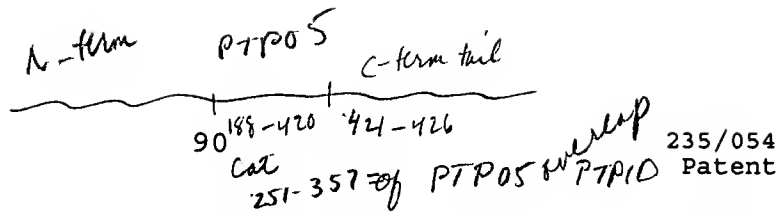 N-term PTP05 C-term tail
188-420 421-426
90
Cat
251-357 of PTP05 overlap PTP10
235/054
Patent